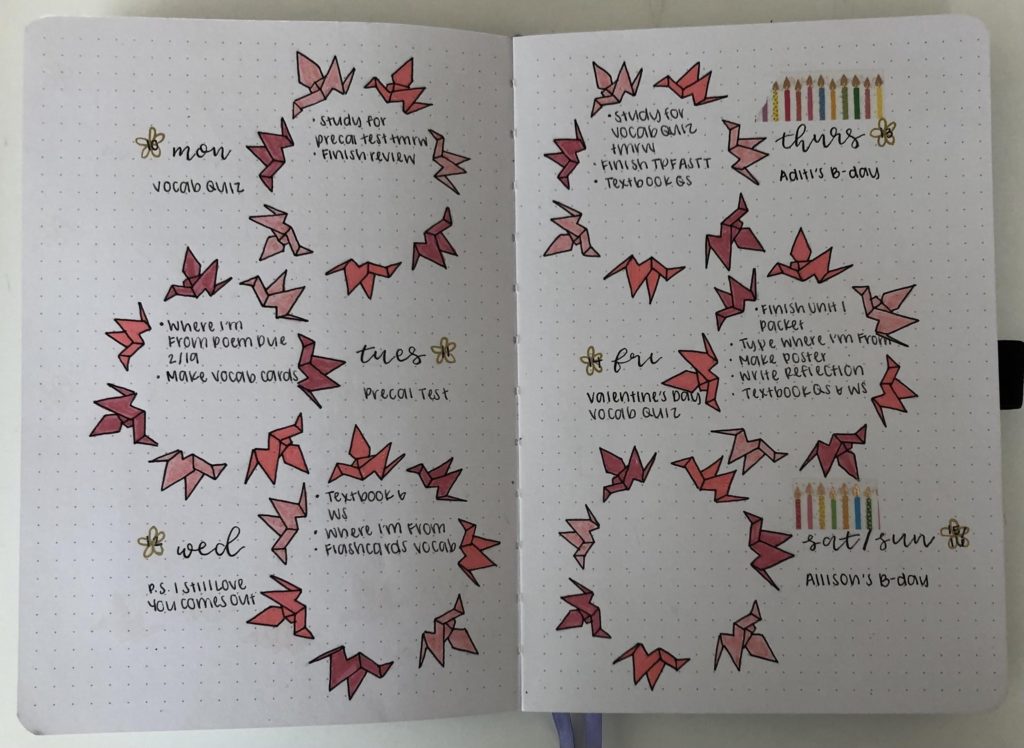 10 mon
vocab Quiz
• Study for
precal test tmrw
• Finish review
• Where I'm
From Poem Due
2/19
• Make vocab cards
tues 11
Precal Test
12 wed
P.S. I Still Love
You comes out
• Textbook &
WS
• Where I'm From
• Flashcards vocab
• Study for
vocab Quiz
tmrw
• Finish TPFASTT
• Textbook QS
thurs 13
Aditi's B-day
14 fri
Valentine's Day
vocab Quiz
• Finish Unit 1
packet
• Type Where I'm From
• Make poster
• Write Reflection
• Textbook QS & WS
sat/sun 15 16
Allison's B-day